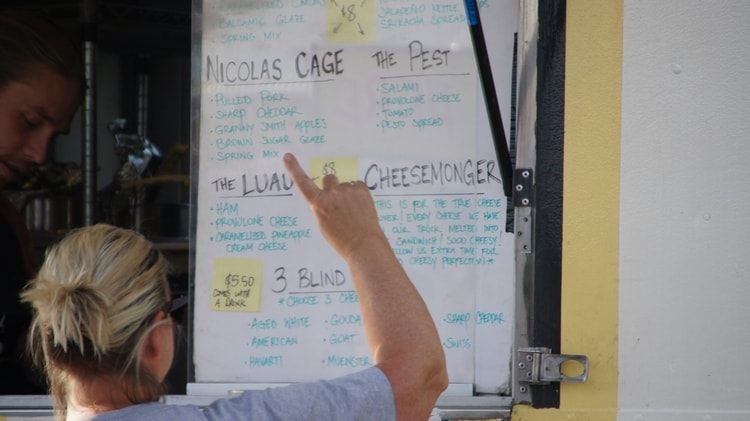 CARAMELIZED ONIONS
BALSAMIC GLAZE
SPRING MIX
$8
JALAPEÑO KETTLE
SRIRACHA SPREAD
NICOLAS CAGE
• PULLED PORK
• SHARP CHEDDAR
• GRANNY SMITH APPLES
• BROWN SUGAR GLAZE
• SPRING MIX
THE PEST
• SALAMI
• PROVOLONE CHEESE
• TOMATO
• PESTO SPREAD
THE LUAU
• HAM
• PROVOLONE CHEESE
• CARAMELIZED PINEAPPLE
CREAM CHEESE
$8
CHEESEMONGER
THIS IS FOR THE TRUE CHEESE
OVER! EVERY CHEESE WE HAVE
OUR TRUCK MELTED INTO
SANDWICH! SOOO CHEESY!
LOW US EXTRA TIME FOR
CHEESY PERFECTION) *
$5.50
COMES WITH
A DRINK
3 BLIND
* CHOOSE 3 CHEE
• AGED WHITE
• AMERICAN
• HAVARTI
• GOUDA
• GOAT
• MUENSTER
• SHARP CHEDDAR
• SWISS